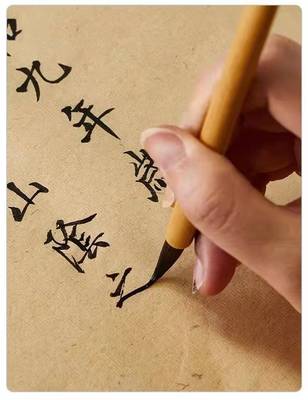 九年歲
山陰